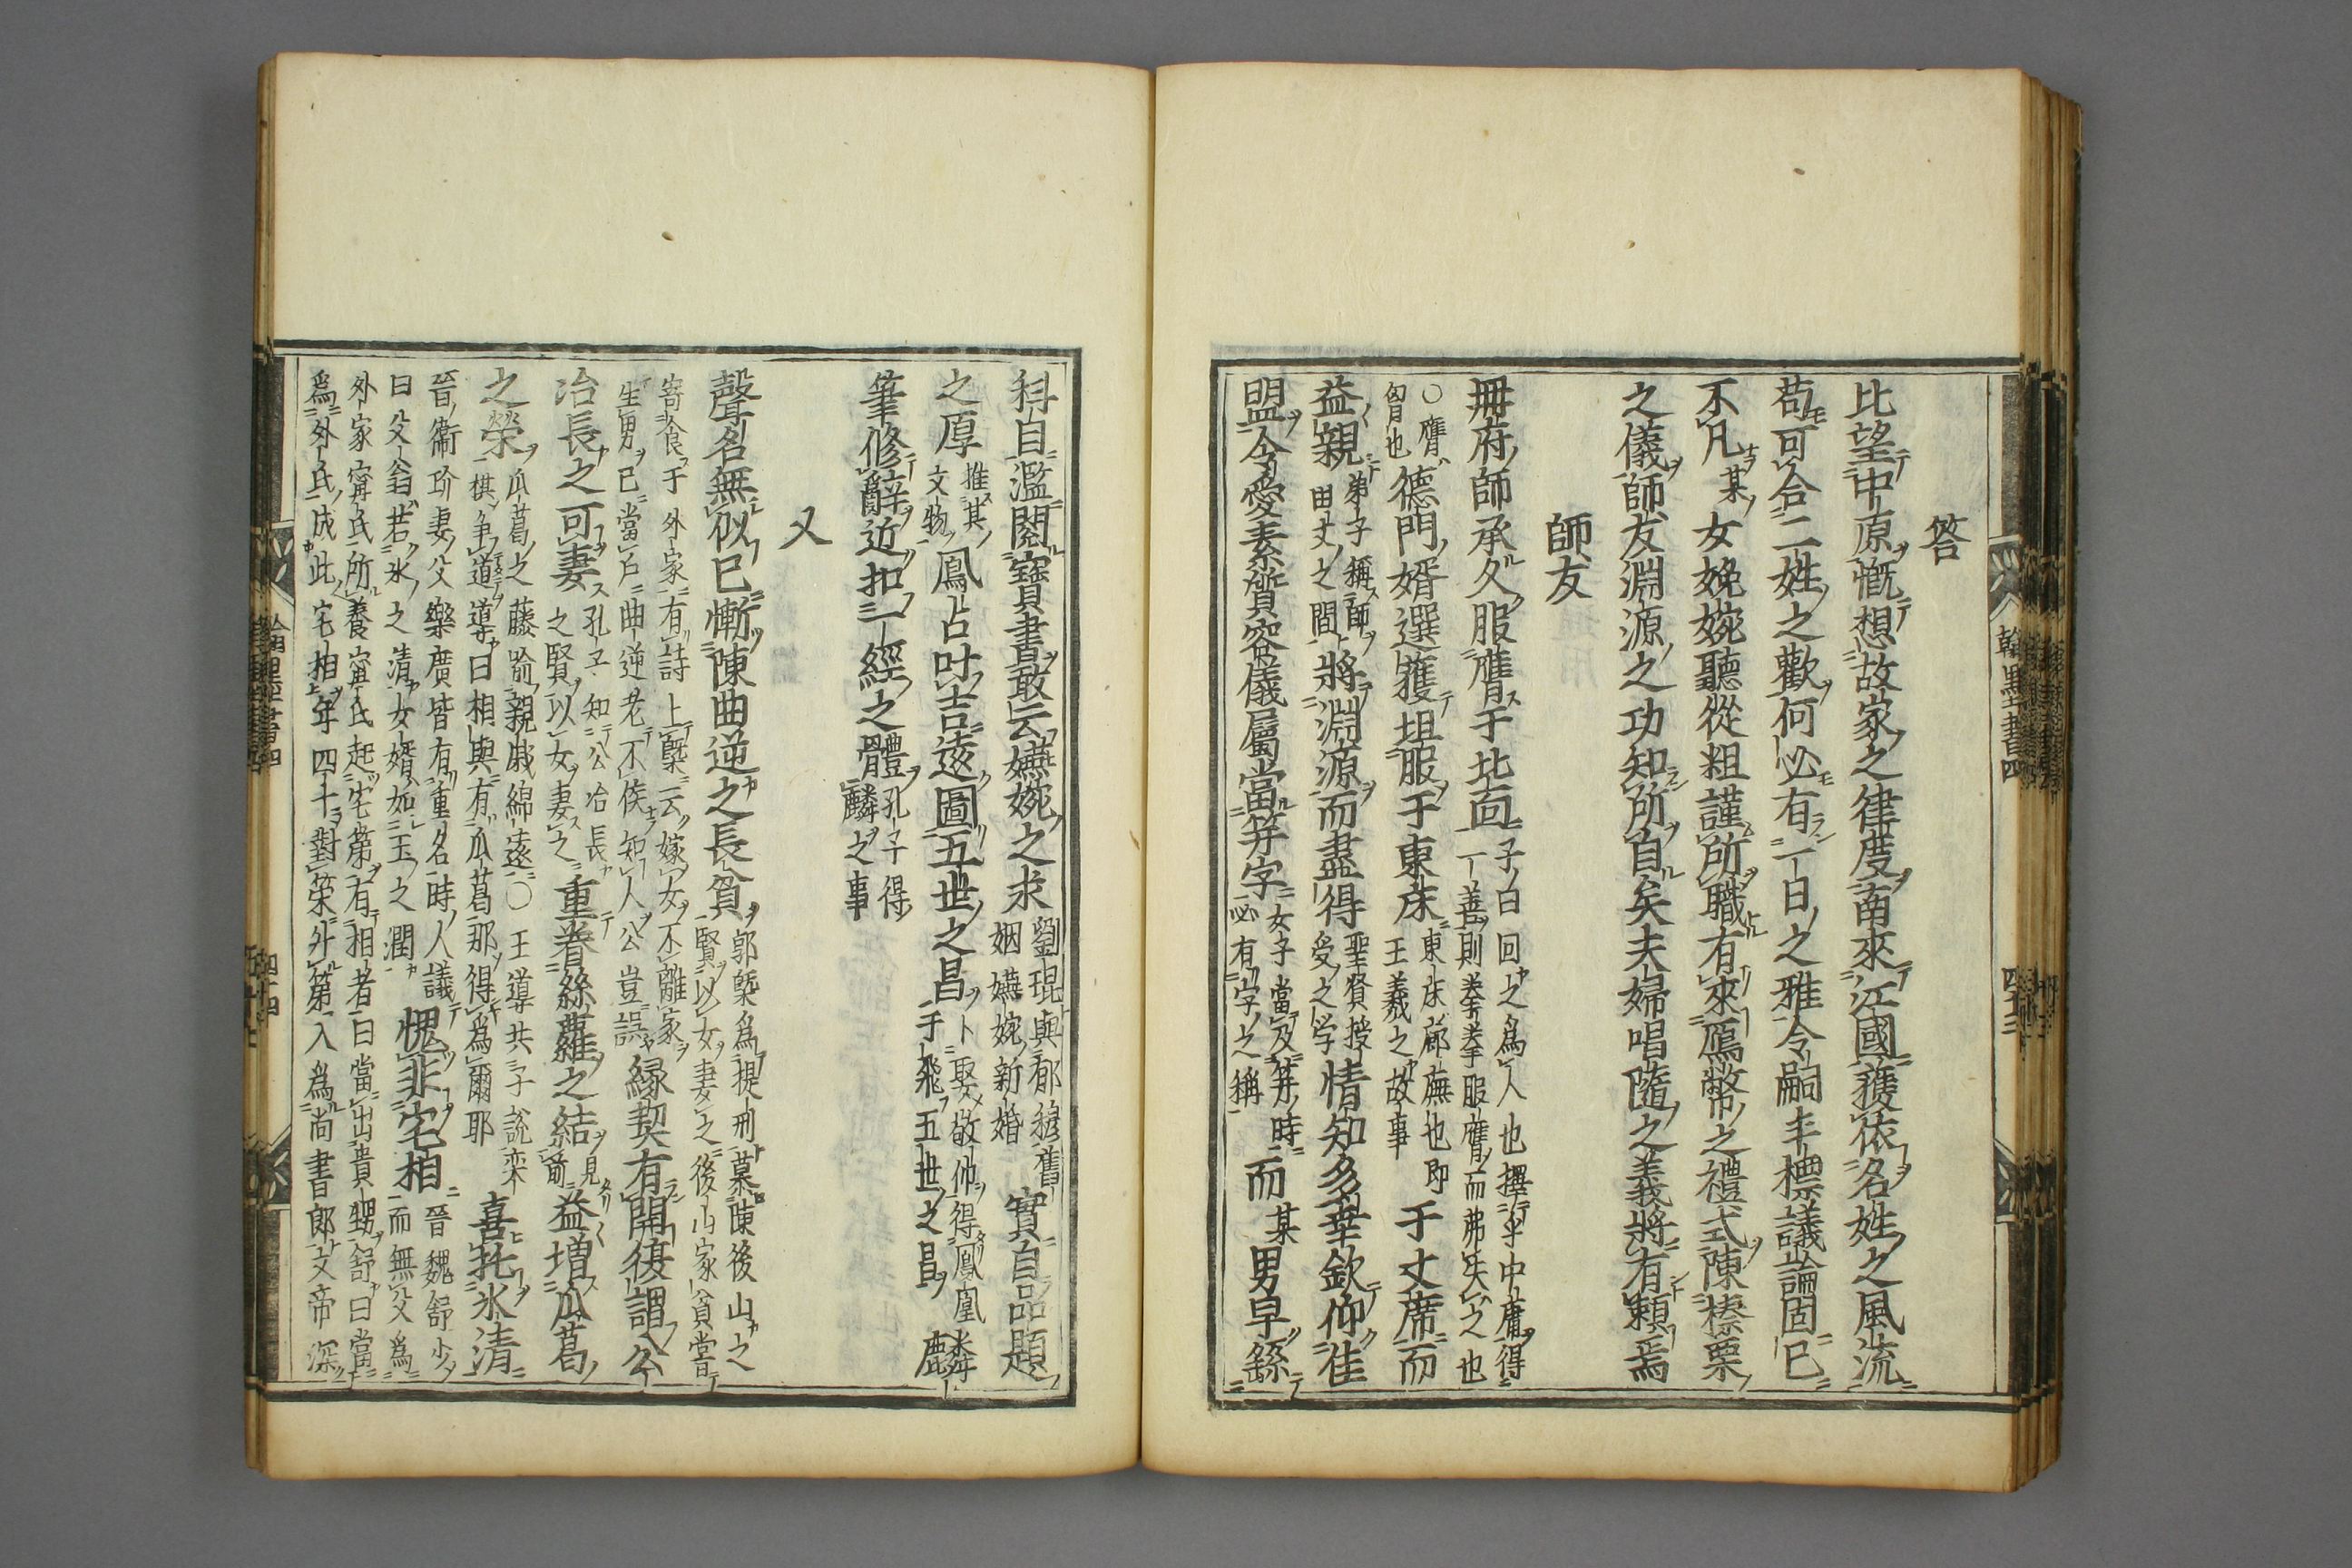 答
比望中原慨想故家之律度南來江國獲依名姓之風流
苟可合二姓之歡何必有一日之雅令嗣丰標議論固已
不凡某女婉婉聽從粗謹所職有來鴈幣之禮式陳榛栗
之儀師友淵源之功知所自矣夫婦唱隨之義將有賴焉
師友
冊府師承久服膺于北面子曰回之爲人也擇乎中庸得一善則拳拳服膺而弗失之也
○膺匈也德門婿選獲坦服于東床東床廊蕪也即王羲之故事于丈席而
益親弟子稱師曰丈之間將淵源而盡得聖賢授受之学情知多幸欽仰佳
盟令愛素質容儀屬當笄字女子當及笄時必有字之稱而某男早繇
科目濫閱寶書敢云嬿婉之求劉琨與郗穆舊姻嬿婉新婚實自品題
之厚推其文物鳳占叶吉遠圖五世之昌卜娶敬仲得鳳凰于飛五世之昌麟
筆修辭近扣一經之體孔子得麟之事
又
聲名無似已慚陳曲逆之長貧郭槩爲提刑慕陳後山之賢以女妻之後山家貧嘗
寄食于外家有詩上槩云嫁女不離家生男已當户曲逆老不侯知人公豈誤緣契有開復謂公
冶長之可妻孔子知公冶長之賢以女妻之重眷絲蘿之結見前益増瓜葛
之榮瓜葛之藤喻親戚綿遠○王導共子說栾棋争道導曰相與有瓜葛那得爲爾耶喜托氷清
晉衞玠妻父樂廣皆有重名時人議曰父翁若氷之清女婿如玉之潤愧非宅相晉魏舒少而無父爲
外家甯氏所養甯氏起宅第有相者曰當出貴甥舒曰當爲外氏成此宅相年四十對策升第入爲尚書郎文帝深
翰墨書四
四十三
四十四